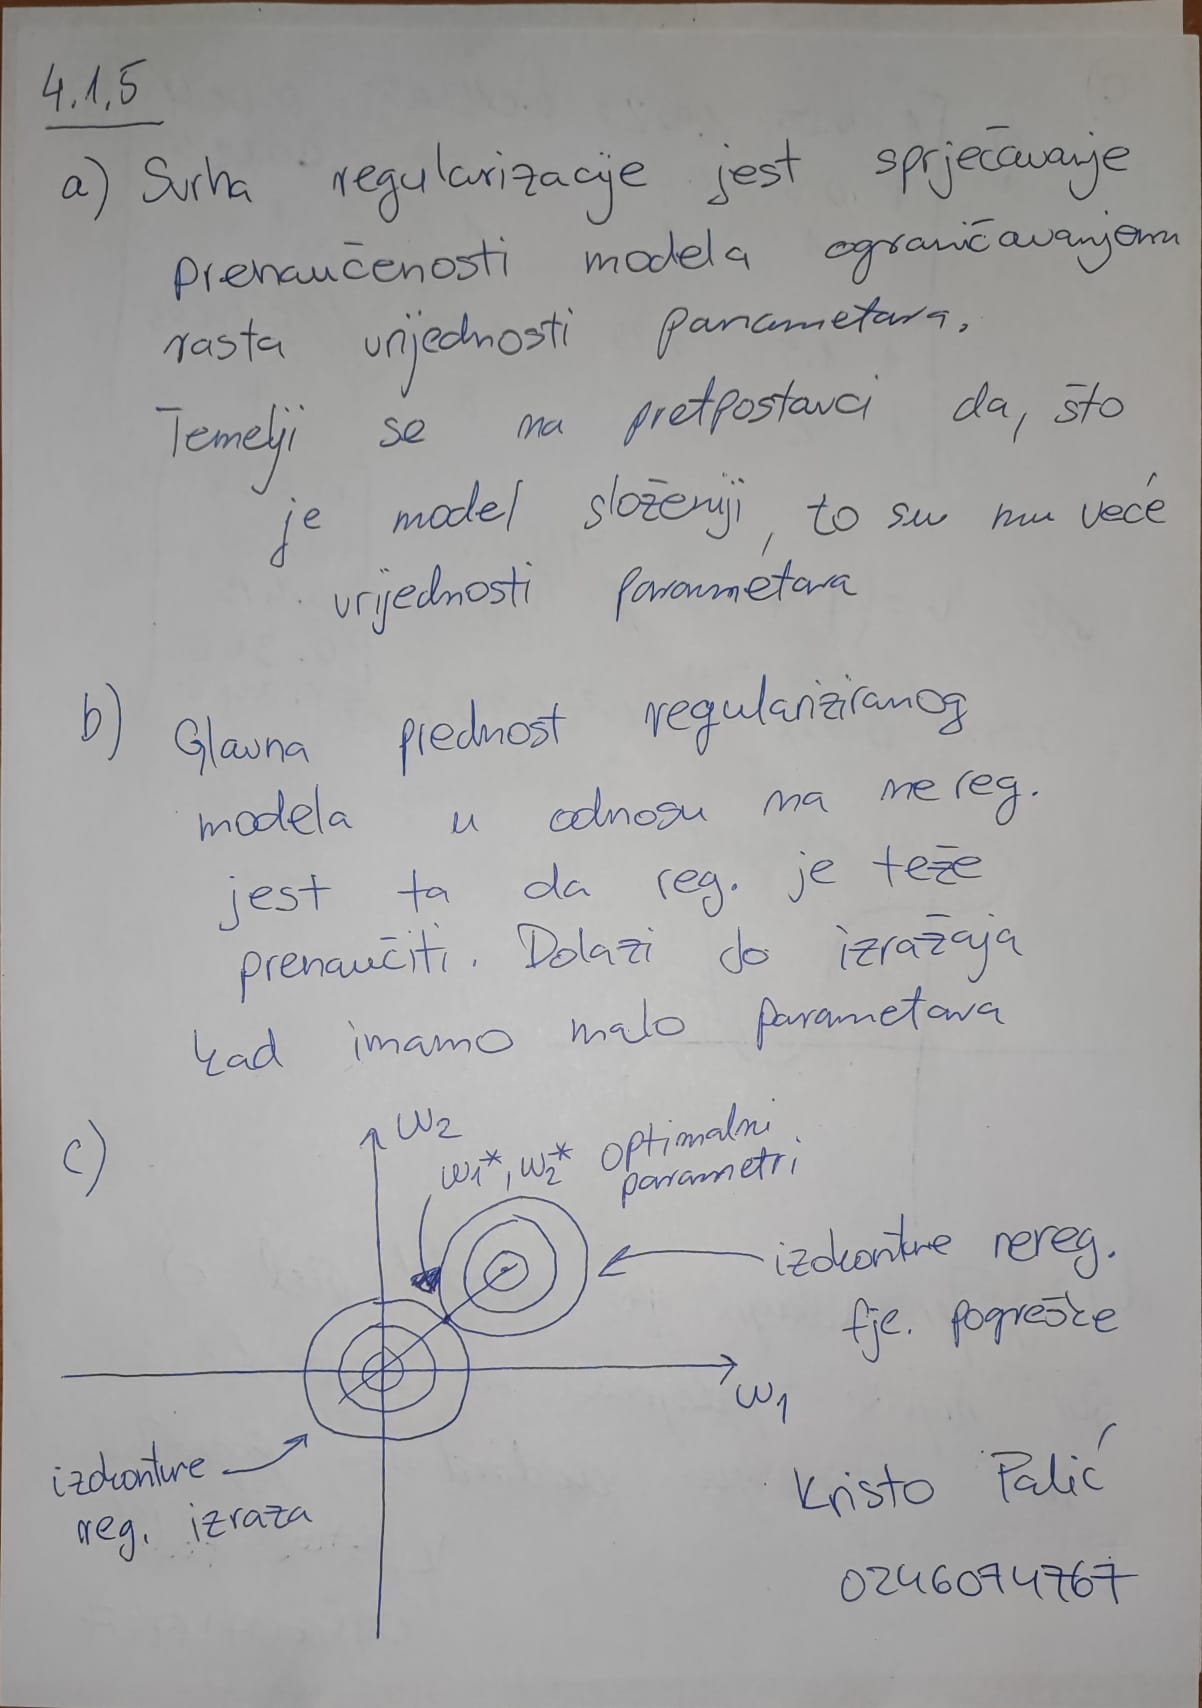 4.1.5
a) Svrha regularizacije jest sprječavanje
prenaučenosti modela ograničavanjem
rasta vrijednosti parametara.
Temelji se na pretpostavci da, što
je model složeniji, to su mu veće
vrijednosti parametara
b) Glavna prednost regulariziranog
modela u odnosu na nereg.
jest ta da reg. je teže
prenaučiti. Dolazi do izražaja
kad imamo malo parametara
c)
w2
w1*, w2* optimalni
parametri
izokonture nereg.
fje. pogreške
w1
izokonture
reg. izraza
Kristo Palić
0246074767